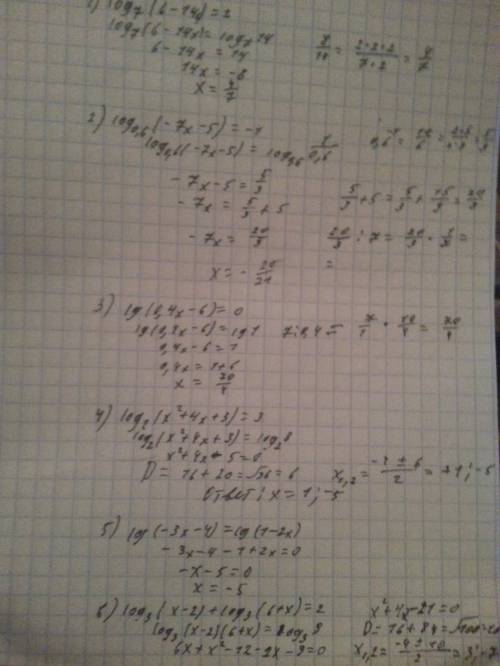 1) log₇(6-14x)=2
log₇(6-14x)=log₇14
6-14x=14
14x=-8
x=4/7
8/14 = (2·2·2)/(7·2) = 4/7
2) log₀,₆(-7x-5)=-1
log₀,₆(-7x-5)=log₀,₆ 1/0,6
-7x-5=5/3
-7x=5/3+5
5/3+5=5/3+15/3=20/3
-7x=20/3
20/3:7=20/3·
=
x=-20/21
3) lg(0,4x-6)=0
lg(0,4x-6)=lg1
0,4x-6=1
0,4x=1+6
x=70/4
7:0,4= 7/1·10/4=70/4
4) log₂(x²+4x+3)=3
log₂(x²+4x+3)=log₂8
x²+4x-5=0
D=16+20=√36=6
x₁,₂=(-4±6)/2=+1;-5
Ответ: x=1;-5
5) lg(-3x-4)=lg(1-2x)
-3x-4-1+2x=0
-x-5=0
x=-5
6) log₃(x-2)+log₃(6+x)=2
log₃(x-2)(6+x)=log₃9
6x+x²-12-2x-9=0
x²+4x-21=0
D=16+84=√100=10
x₁,₂=(-4±10)/2=3;-7